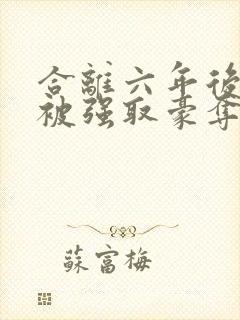 合離六年後
被强取豪奪
蘇富梅